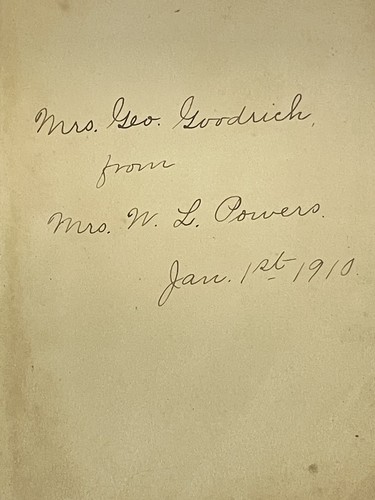 Mrs. Geo. Goodrich,
from
Mrs. W. L. Powers.
Jan. 1st 1910.